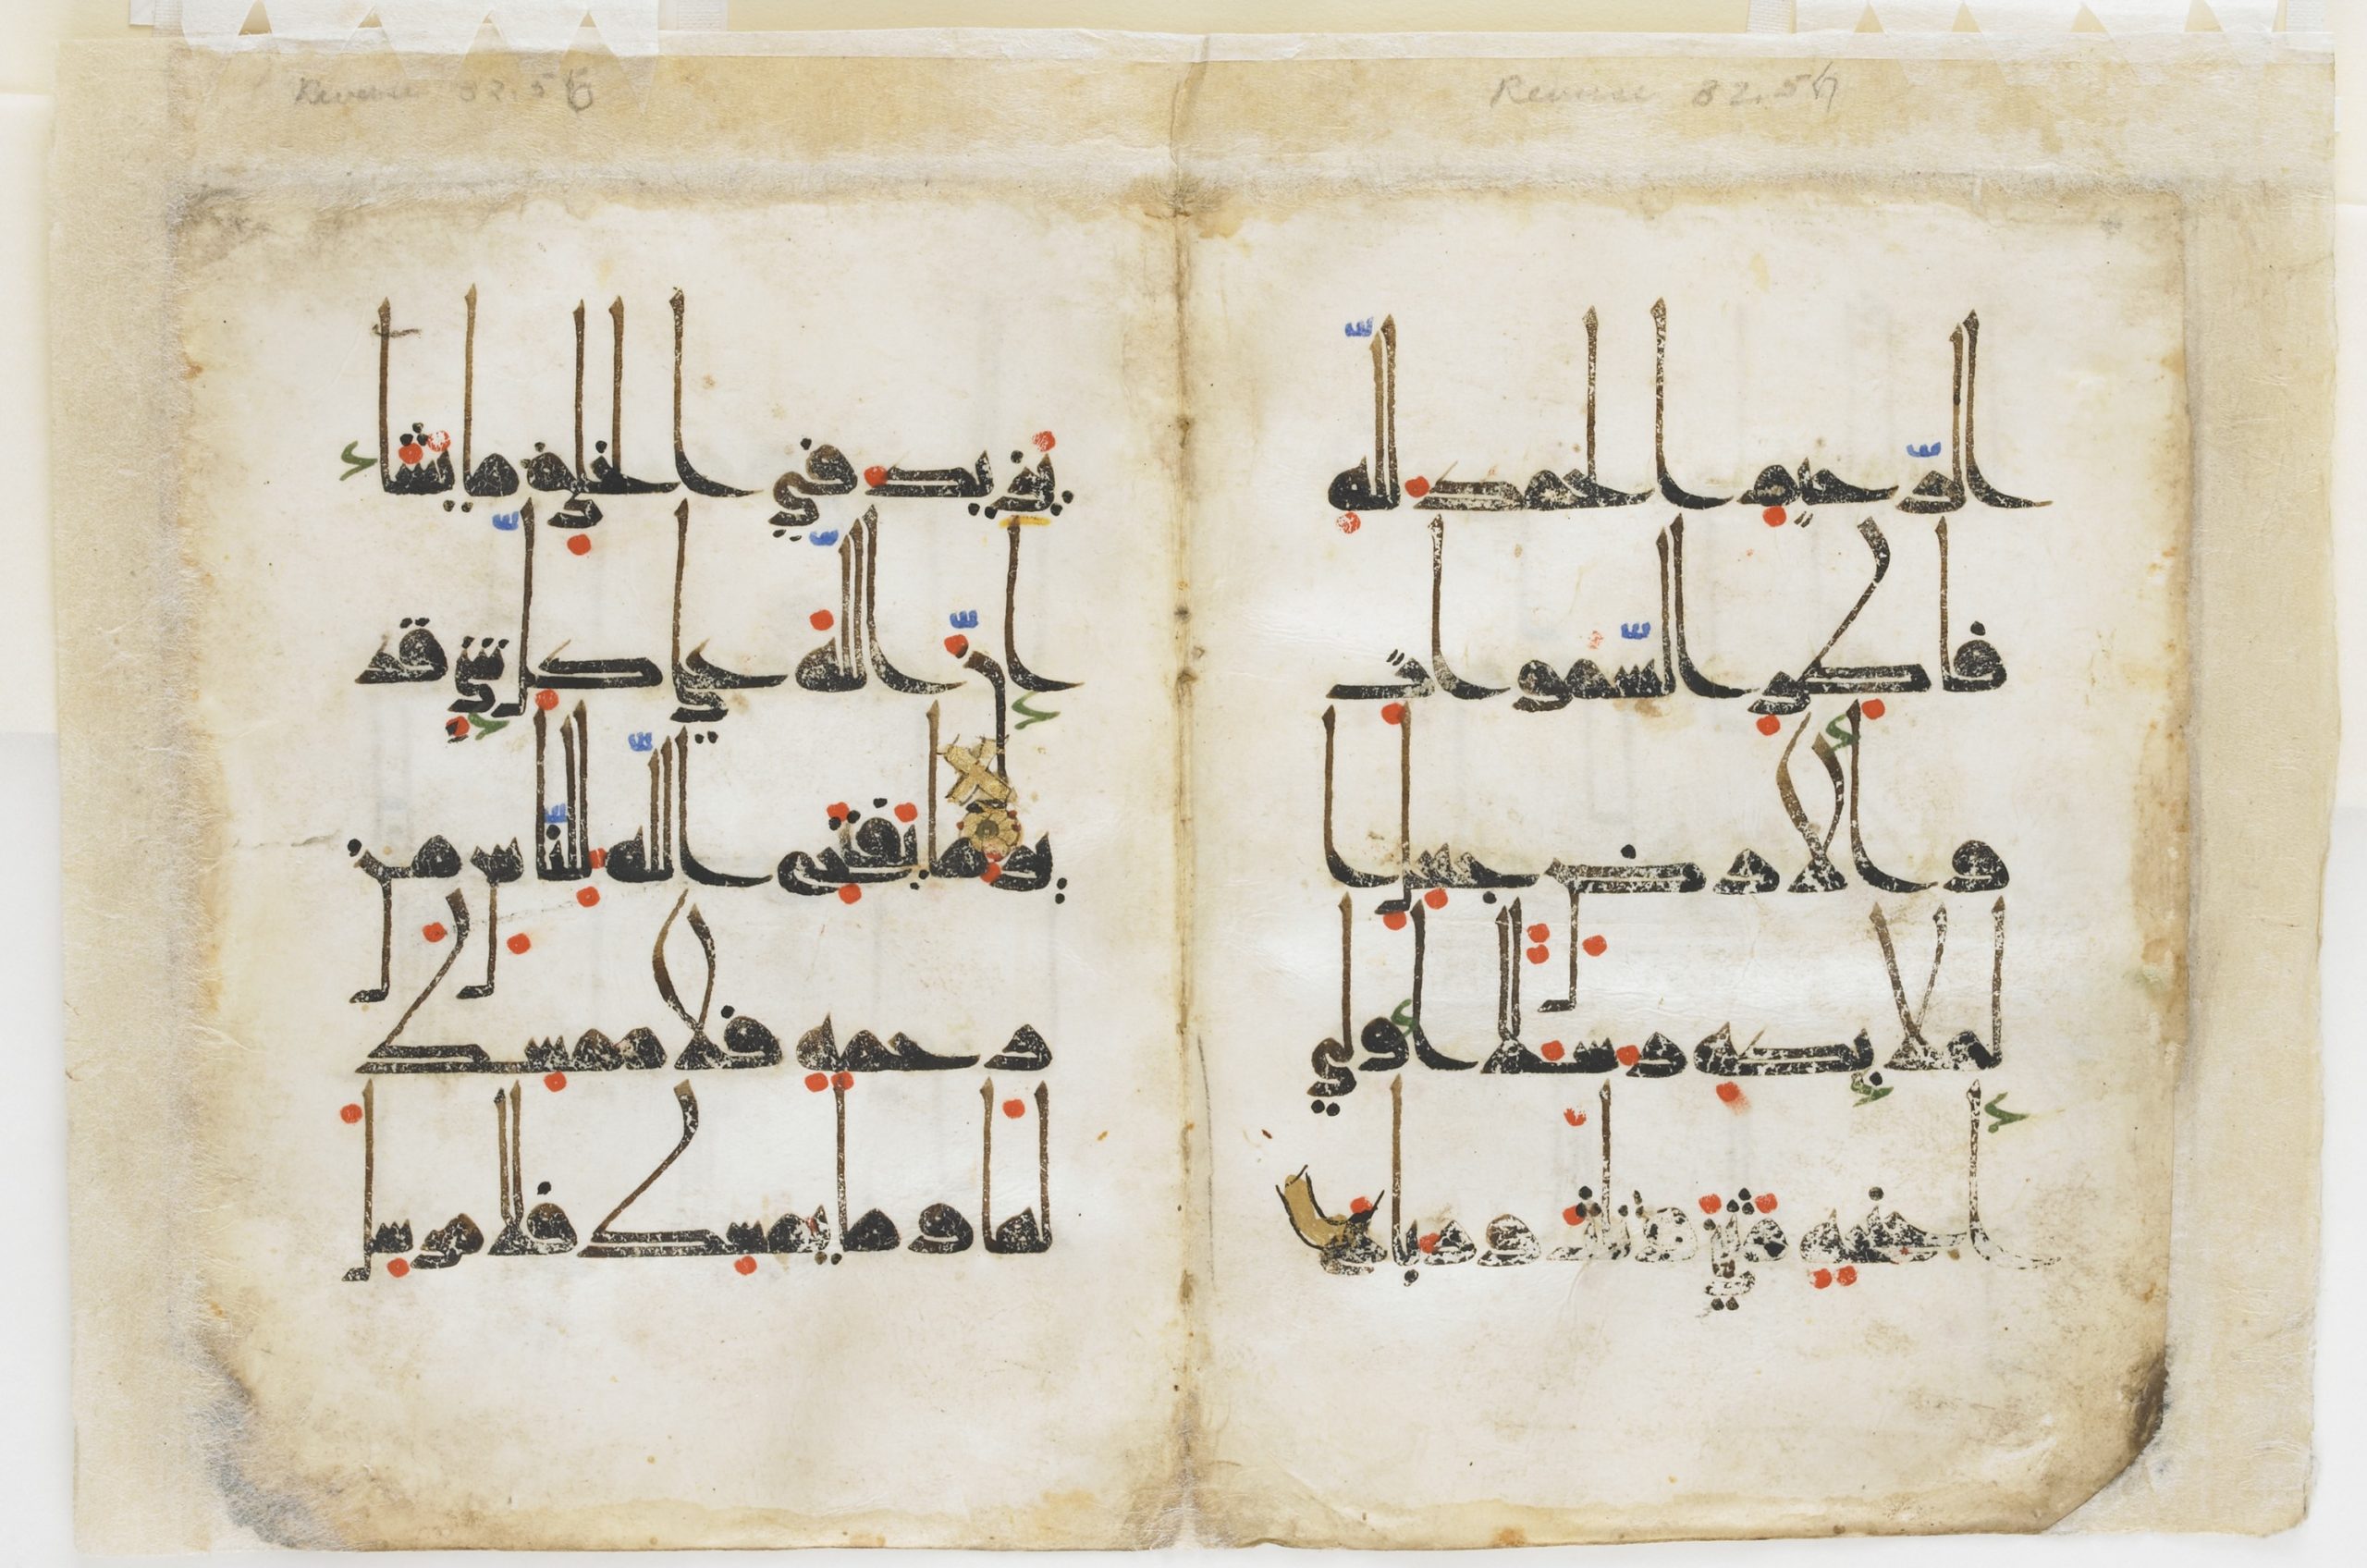 Reverse
الرّحيم الحمد للّه
فاطر السّموات
والارض جعل ا
لملائكة رسلا اولي
اجنحة مثنى وثلث ورباع
Reverse
يزيد في الخلق ما يشاء
انّ اللّه على كلّ شيء قد
ير ما يفتح اللّه للنّاس من
رحمة فلا ممسك
لها وما يمسك فلا مرسل